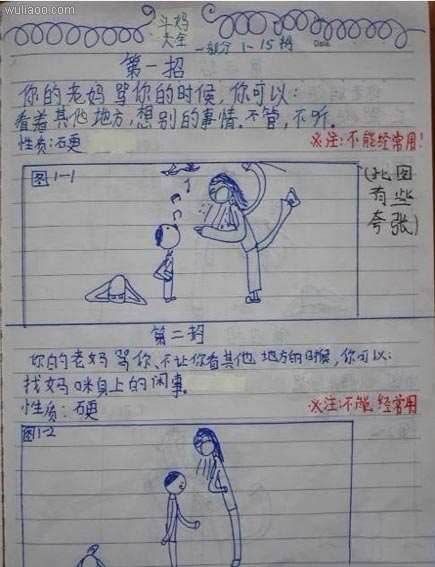 wuliaoo.com
斗妈
大全
一部分 1-15招
Date.
第一招
你的老妈骂你的时候,你可以:
看着其他地方,想别的事情。不管,不听。
性质:石更
※注:不能经常用!
图1-1
(此图
有些
夸张)
第二招
你的老妈骂你、不让你看其他地方的时候,你可以:
找妈咪身上的闲事。
性质:石更
※注:不能经常用
图1-2